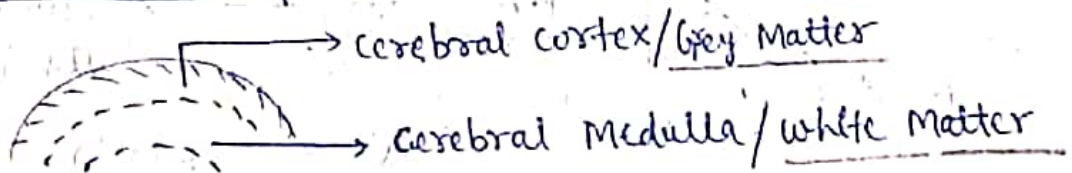 cerebral cortex/Grey Matter
cerebral medulla/white matter